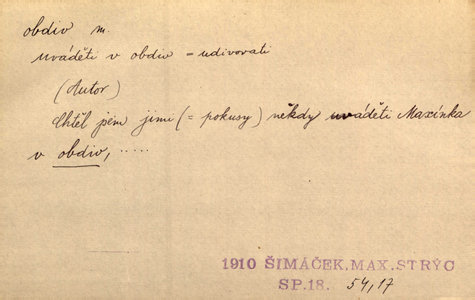 obdiv m.
uváděti v obdiv = udivovati
(Autor)
Chtěl jsem jimi (= pokusy) někdy uváděti Maxínka
v obdiv, .....
1910 ŠIMÁČEK.MAX.STRÝC
SP.18. 54,17